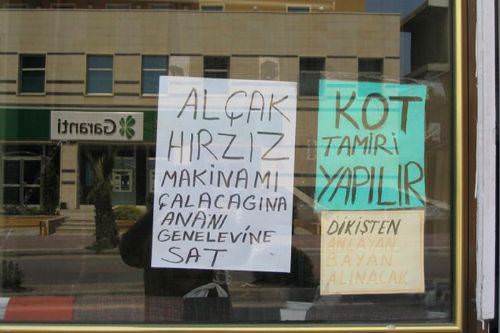 Garanti
ALÇAK
HIRZIZ
MAKİNAMI
ÇALACAGINA
ANANI
GENELEVİNE
SAT
KOT
TAMİRİ
YAPILIR
DİKİŞTEN
ANLAYAN
BAYAN
ALINACAK